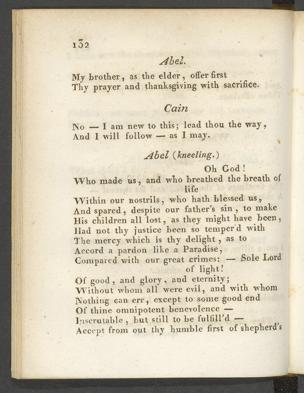 132
Abel.
My brother, as the elder, offer first
Thy prayer and thanksgiving with sacrifice.
Cain
No — I am new to this; lead thou the way,
And I will follow — as I may.
Abel (kneeling.)
Oh God!
Who made us, and who breathed the breath of
life
Within our nostrils, who hath blessed us,
And spared, despite our father's sin, to make
His children all lost, as they might have been,
Had not thy justice been so temper'd with
The mercy which is thy delight, as to
Accord a pardon like a Paradise,
Compared with our great crimes: — Sole Lord
of light!
Of good, and glory, and eternity;
Without whom all were evil, and with whom
Nothing can err, except to some good end
Of thine omnipotent benevolence —
Inscrutable, but still to be fulfill'd —
Accept from out thy humble first of shepherd's